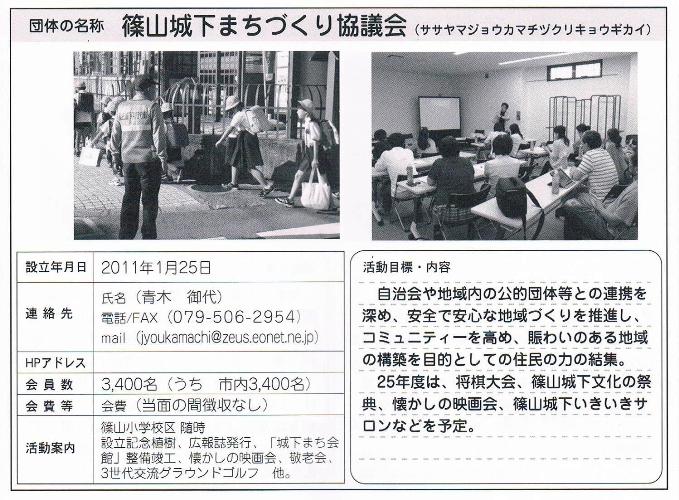 団体の名称 篠山城下まちづくり協議会（ササヤマジョウカマチヅクリキョウギカイ）
設立年月日 2011年1月25日
連絡先 氏名（青木 御代）
電話/FAX（079-506-2954）
mail（jyoukamachi@zeus.eonet.ne.jp）
HPアドレス
会員数 3,400名（うち 市内3,400名）
会費等 会費（当面の間徴収なし）
活動案内 篠山小学校区 随時
設立記念植樹、広報誌発行、「城下まち会
館」整備竣工、懐かしの映画会、敬老会、
3世代交流グラウンドゴルフ 他。
活動目標・内容
自治会や地域内の公的団体等との連携を
深め、安全で安心な地域づくりを推進し、
コミュニティーを高め、賑わいのある地域
の構築を目的としての住民の力の結集。
25年度は、将棋大会、篠山城下文化の祭
典、懐かしの映画会、篠山城下いきいきサ
ロンなどを予定。